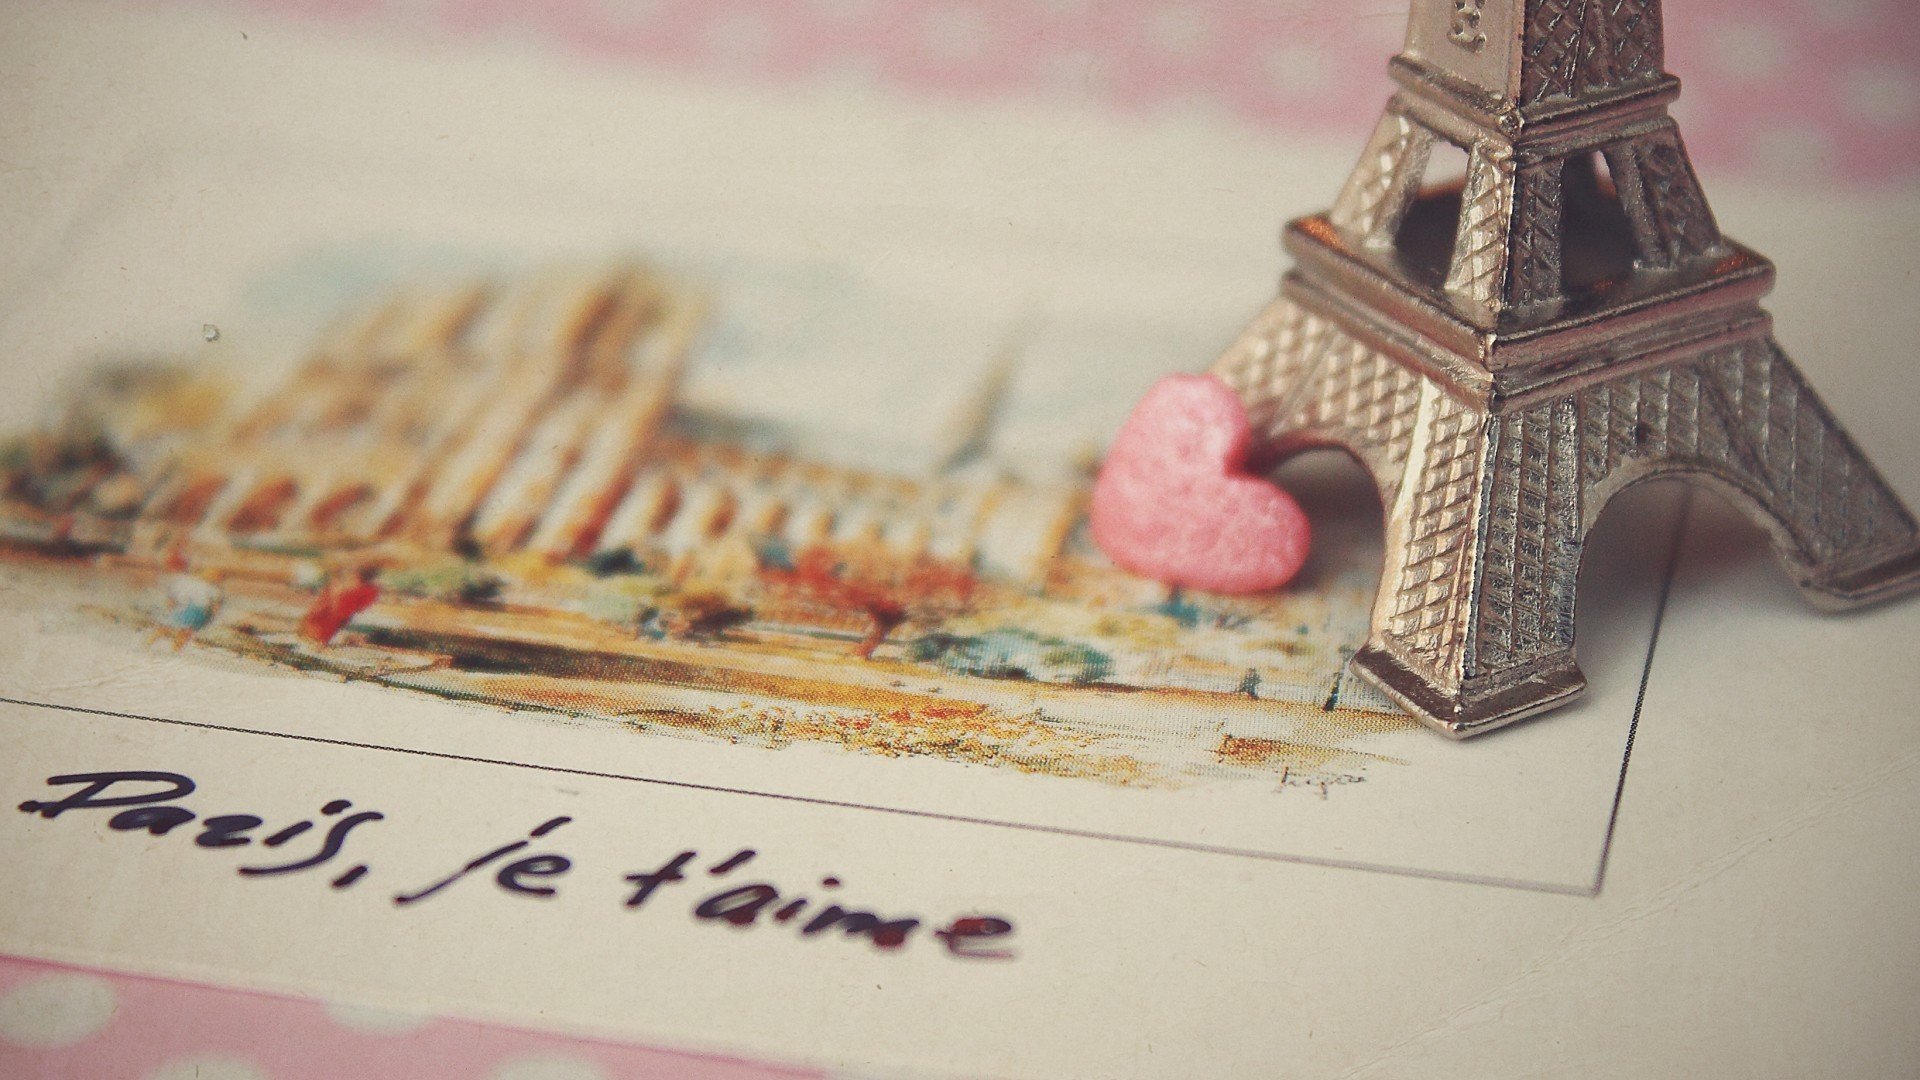 Paris, je t'aime